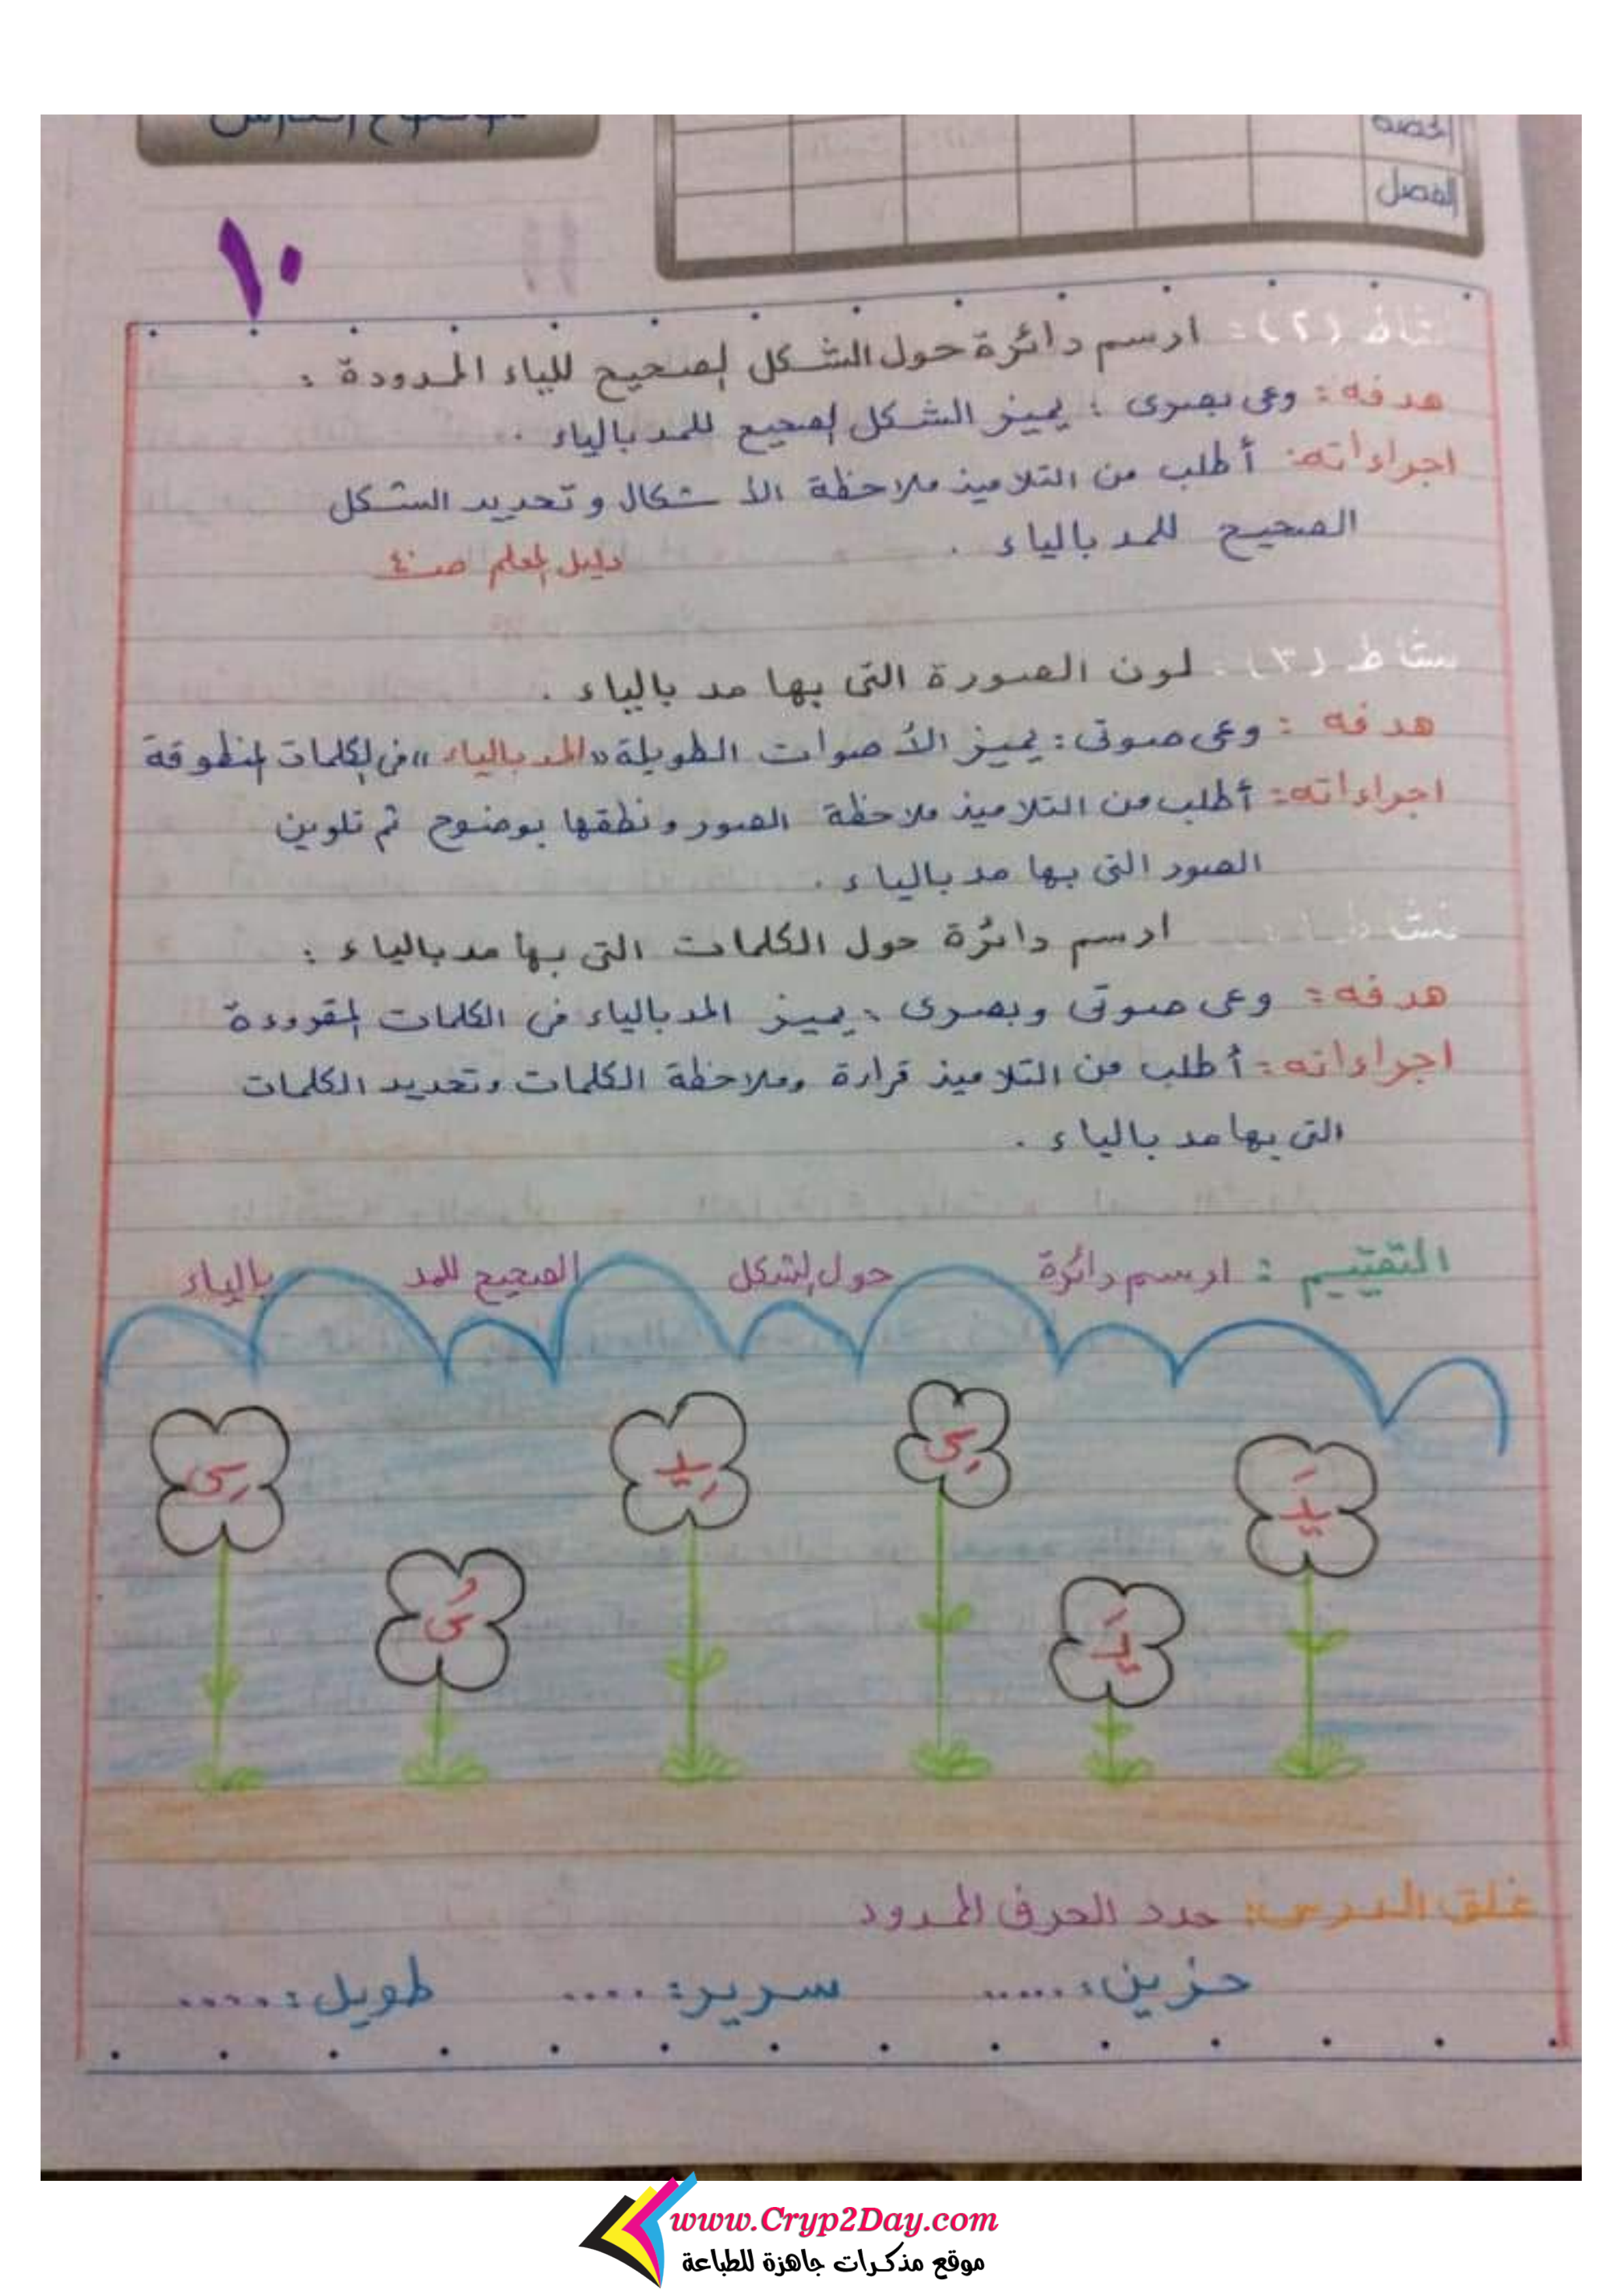 موضوع الدرس
الحصة
الفصل
١٠
نشاط (٢): ارسم دائرة حول الشكل الصحيح للياء الممدودة :
هدفه : وعى بصرى : يميز الشكل الصحيح للمد بالياء .
اجراءاته: أطلب من التلاميذ ملاحظة الأشكال وتحديد الشكل
الصحيح للمد بالياء .
دليل المعلم صـ٤٠
نشاط (٣): لون الصورة التى بها مد بالياء .
هدفه : وعى صوتى : يميز الأصوات الطويلة «المد بالياء» فى الكلمات المنطوقة
اجراءاته: أطلب من التلاميذ ملاحظة الصور ونطقها بوضوح ثم تلوين
الصور التى بها مد بالياء .
نشاط ارسم دائرة حول الكلمات التى بها مد بالياء :
هدفه : وعى صوتى وبصرى : يميز المد بالياء فى الكلمات المقروءة
اجراءاته: أطلب من التلاميذ قراءة وملاحظة الكلمات وتحديد الكلمات
التى بها مد بالياء .
التقييم : ارسم دائرة حول الشكل الصحيح للمد بالياء
ـِى ـِيـ ـِى
ـُى
غلق الدرس: حدد الحرف الممدود
حزين: ..... سرير: .... طويل: .....
www.Cryp2Day.com
موقع مذكرات جاهزة للطباعة